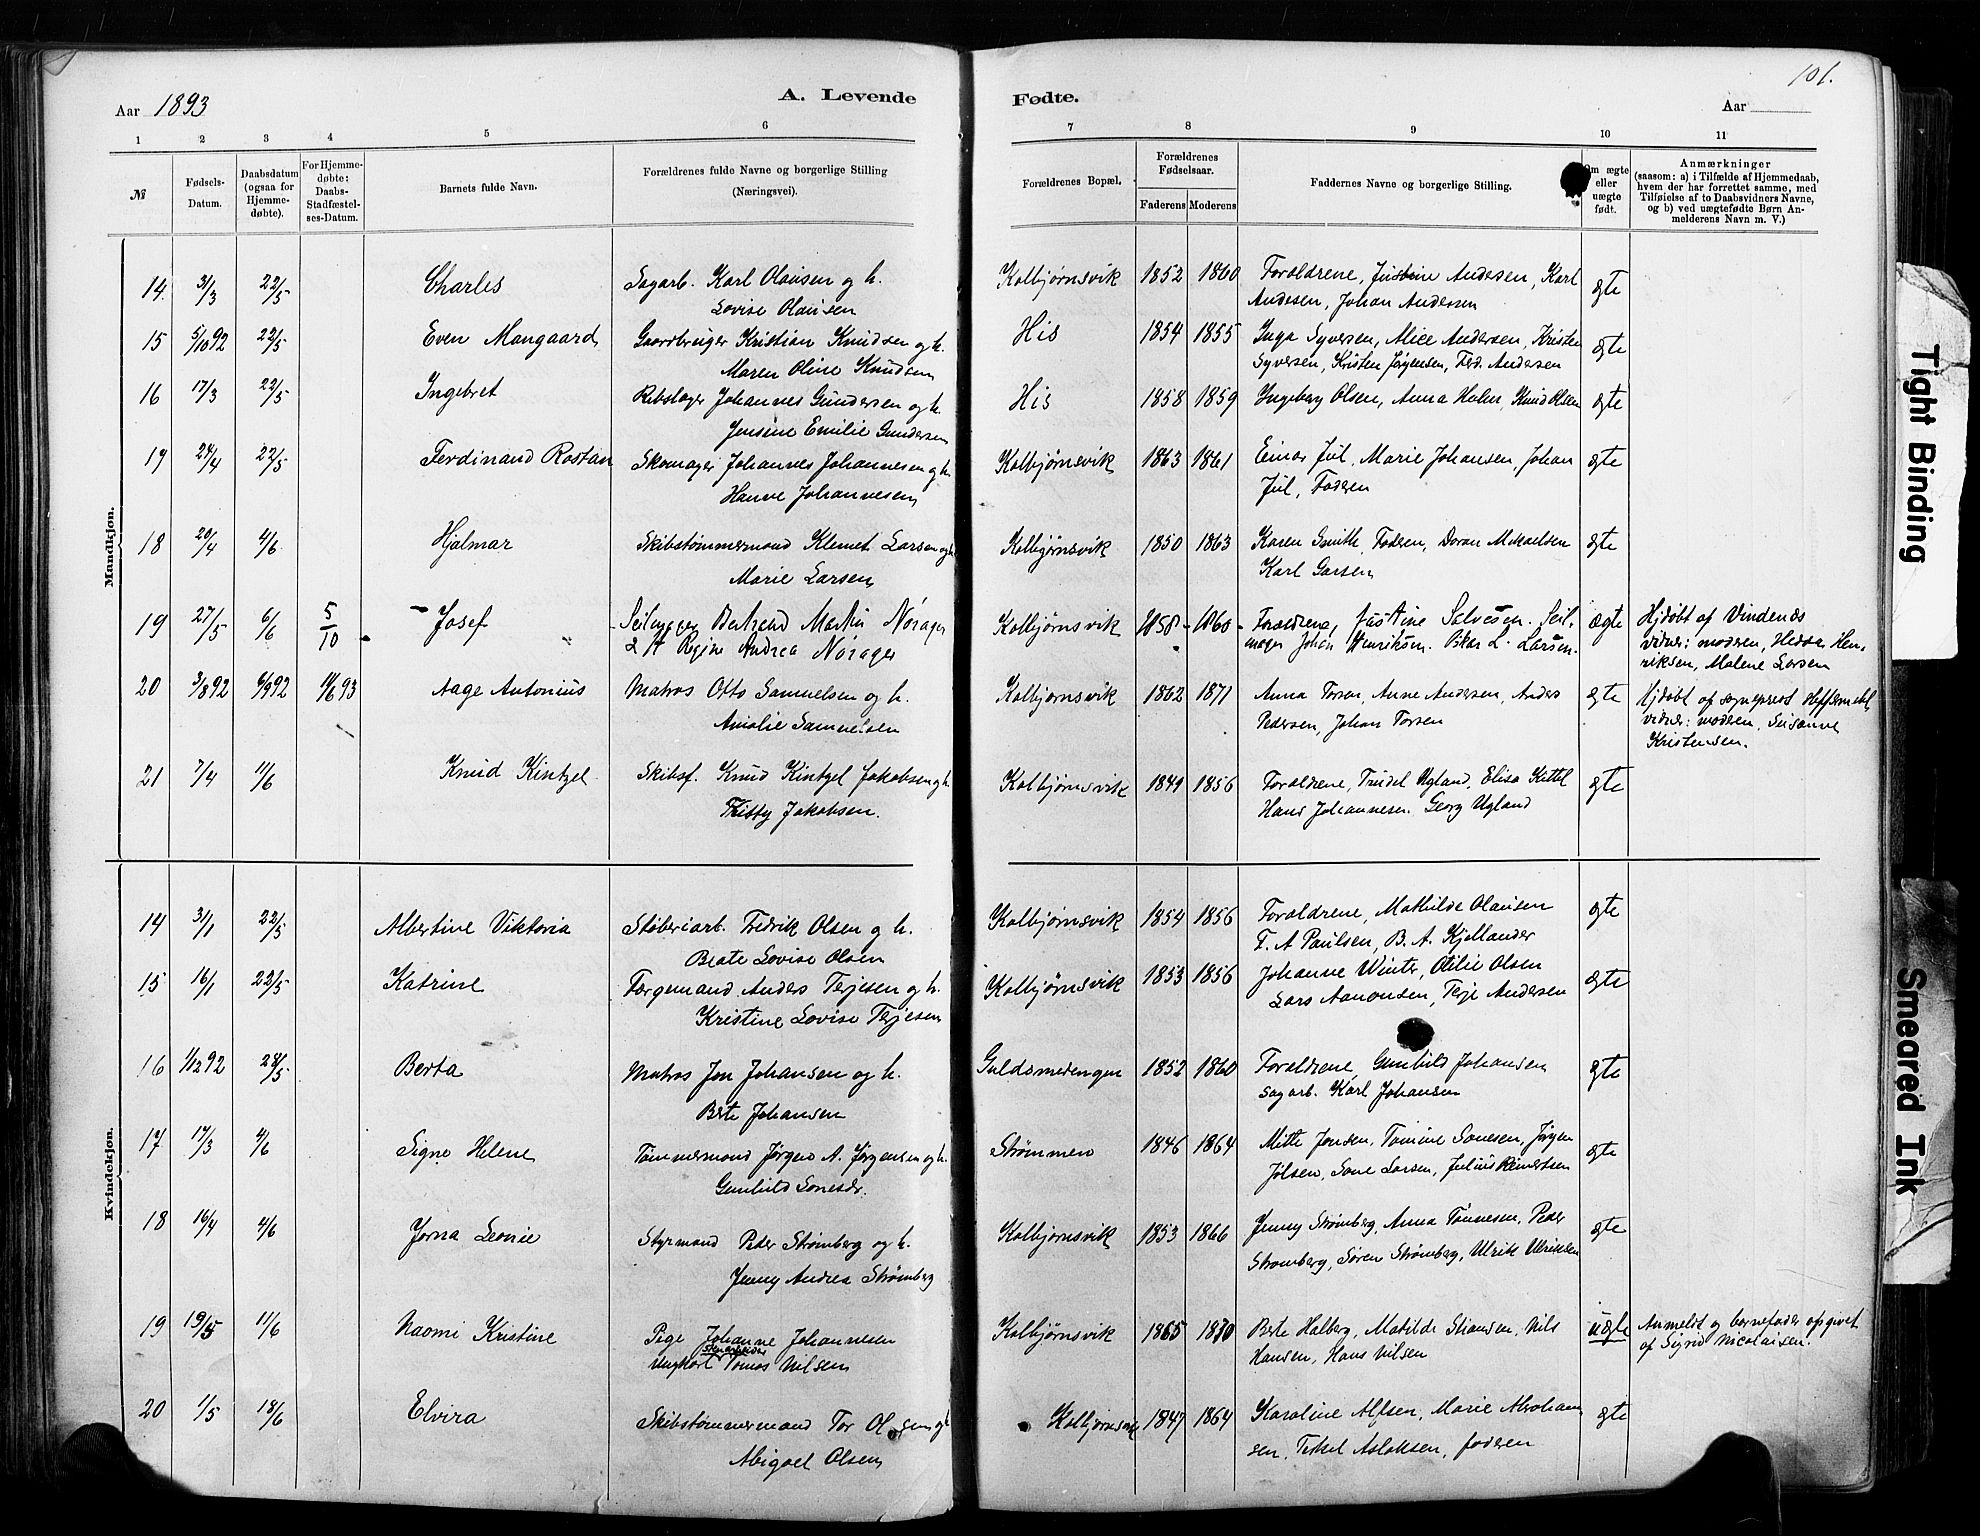 101.
Aar 1893
A. Levende
Fødte.
Aar
1 2 3 4 5 6 7 8 9 10 11
№
Fødsels-
Datum.
Daabsdatum
(ogsaa for
Hjemme-
døbte).
For Hjemme-
døbte:
Daabs-
Stadfæstel-
ses-Datum.
Barnets fulde Navn.
Forældrenes fulde Navne og borgerlige Stilling
(Næringsvei).
Forældrenes Bopæl.
Forældrenes
Fødselsaar.
Faderens Moderens
Faddernes Navne og borgerlige Stilling.
Om ægte
eller
uægte
født.
Anmærkninger
(saasom: a) i Tilfælde af Hjemmedaab,
hvem der har forrettet samme, med
Tilføielse af to Daabsvidners Navne,
og b) ved uægtefødte Børn An-
melderens Navn m. V.)
Mandkjøn.
14 31/3 22/5 Charles Sagarb. Karl Olausen og h. Kolbjørnsvik 1852 1860 Foreldrene, Justine Andersen, Karl ægte
Lovise Olausen Andersen, Johan Andersen
15 5/10 92 22/5 Even Mangaard Gaardbruger Kristian Knudsen og h. His 1854 1855 Inga Syversen, Alice Andersen, Kristen ægte
Maren Oline Knudsen Syversen, Kristen Jørgensen, Ferd. Andersen
16 17/3 22/5 Ingebret Rebslager Johannes Gundersen og h. His 1858 1859 Ingeborg Olsen, Anna Holm, Knud Olsen ægte
Jensine Emilie Gundersen
19 24/4 22/5 Ferdinand Rostan Skomager Johannes Johannesen og h. Kolbjørnsvik 1863 1861 Einar Jul, Marie Johansen, Johan ægte
Hanne Johannesen Jul, Faderen
18 20/4 4/6 Hjalmar Skibstømmermand Klemet Larsen og h. Kolbjørnsvik 1850 1863 Karen Smith, Faderen, Doran Mikaelsen ægte
Marie Larsen Karl Larsen
19 27/5 6/6 5/10 Josef Seilmager Bertrand Martin Norager Kolbjørnsvik 1858 - 1860 - Foreldrene, Justine Salvesen. Seil- ægte Hjdøbt af Vindenes
& H Regine Andrea Norager mager Johan Henriksen. Oskar L. Larsen. vidner: modren, Hedda Hen-
riksen, Malene Larsen
20 3/8 92 6/9 92 11/6 93 Aage Antonius Matros Otto Samuelsen og h. Kolbjørnsvik 1862 1871 Anna Torsen, Anne Andersen, Anders ægte Hjdøbt af sognepræst
Amalie Samuelsen Pedersen, Johan Torsen vidner: modren, Susanne
Kristensen.
21 7/4 11/6 Knud Kintzel Skibsf. Knud Kintzel Jakobsen og h. Kolbjørnsvik 1849 1856 Foreldrene, Trudel Ugland, Elisa Kittel ægte
Kitty Jakobsen. Hans Johannesen. Georg Ugland
Kvindekjøn.
14 31/1 22/5 Albertine Viktoria Støberiarb. Fredrik Olsen og h. Kolbjørnsvik 1854 1856 Foreldrene, Mathilde Olausen ægte
Beate Lovise Olsen F. A Paulsen, B. A. Kjellander
15 16/1 22/5 Katrine Færgemand Anders Terjesen og h. Kolbjørnsvik 1853 1856 Johanne Winter, Otilie Olsen ægte
Kristine Lovise Terjesen Lars Aanonsen, Terje Andersen
16 1/12 92 28/5 Berta Matros Jon Johansen og h. Guldsmedengen 1852 1860 Foreldrene, Gunhild Johansen ægte
Berte Johansen sagarb. Karl Johansen
17 17/3 4/6 Signe Helene Tømmermand Jørgen A. Jørgensen og h. Strømmen 1846 1864 Mitte Jensen, Tomine Sonesen, Jørgen ægte
Gunhild Sonesdr. Jølsen, Sone Larsen, Julius Reinertsen
18 16/4 4/6 Jorna Leonie Styrmand Peder Strømberg og h. Kolbjørnsvik 1853 1866 Jenny Strømberg, Anna Tønnesen, Peder ægte
Jenny Andrea Strømberg Strømberg, Søren Strømberg, Ulrik Ulriksen
19 19/5 11/6 Naomi Kristine Pige Johanne Johannesen Kolbjørnsvik 1865 1870 Berte Halberg, Matilde Stiansen, Nils uægte Anmeldt og barnefader opgivet
Ungkarl Tomas Nilsen Hansen, Hans Nilsen af Sigrid Nicolaisen.
20 1/5 18/6 Elvira Skibstømmermand Tor Olsen og h. Kolbjørnsvik 1847 1864 Karoline Alfsen, Marie Abraham- ægte
Abigael Olsen sen, Terkel Aslaksen, faderen
Tight Binding
Smeared Ink